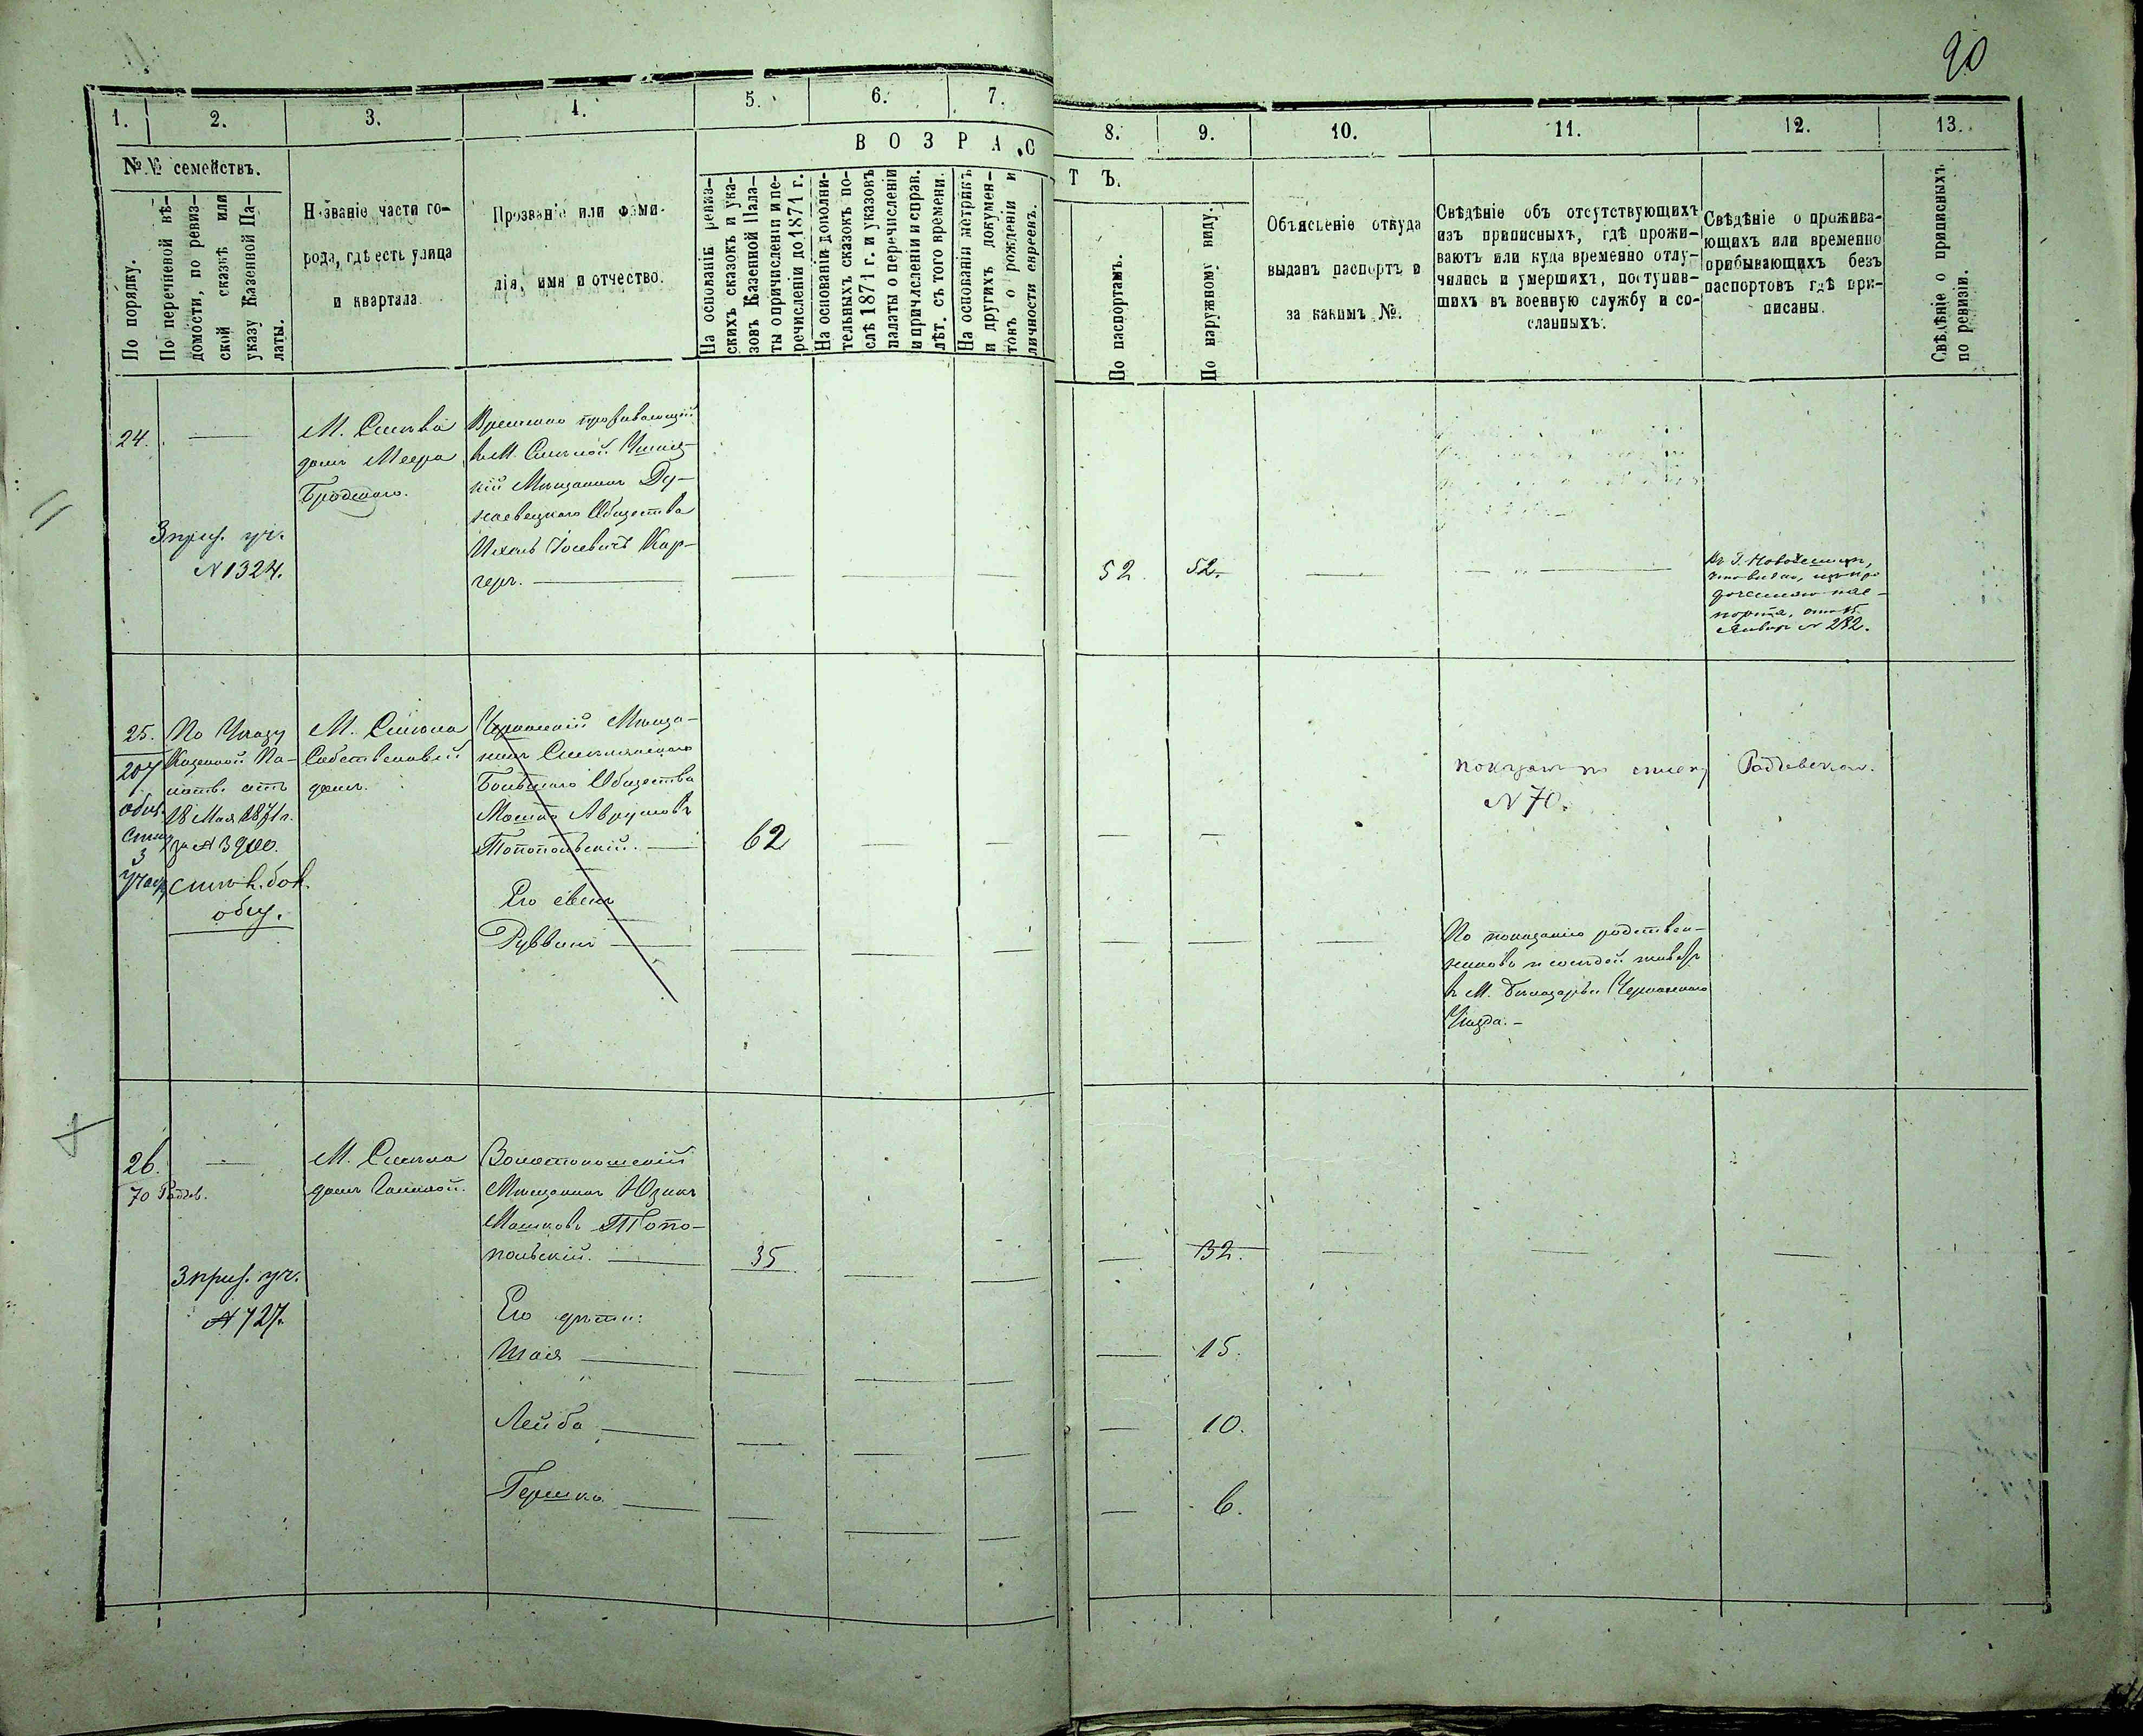 90
1. 2. 3. 4. 5. 6. 7. 8. 9. 10. 11. 12. 13.
№№ семействъ.
По порядку.
По перечневой вѣ-
домости, по ревиз-
ской сказкѣ или
указу Казенной Па-
латы.
Названіе части го-
рода, гдѣ есть улица
и квартала
Прозваніе или фами-
лія, имя и отчество.
ВОЗРАСТЪ.
На основаніи ревиз-
скихъ сказокъ и ука-
зовъ Казенной Пала-
ты о причисленіи и пе-
речисленіи до 1871 г.
На основаніи дополни-
тельныхъ сказокъ по-
слѣ 1871 г. и указовъ
палаты о перечисленіи
и причисленіи и справ.
лѣт. съ того времени.
На основаніи метрикъ
и другихъ докумен-
товъ о рожденіи и
личности евреевъ.
По паспортамъ.
По наружному виду.
Объясненіе откуда
выданъ паспортъ и
за какимъ №.
Свѣдѣніе объ отсутствующихъ
изъ приписныхъ, гдѣ прожи-
ваютъ или куда временно отлу-
чились и умершихъ, поступив-
шихъ въ военную службу и со-
сланныхъ.
Свѣдѣніе о прожива-
ющихъ или временно
прибывающихъ безъ
паспортовъ гдѣ при-
писаны.
Свѣдѣніе о приписныхъ
по ревизіи.
24.
3 приз. уч.
№ 1324.
М. Смѣла
домъ Меера
Бродскаго.
Временно проживающій
въ М. Смѣлой
Мѣщанинъ Ду-
наевецкаго Общества
52. 52.
Января № 282.
25.
207
общ.
спис.
3
участ.
По Указу
Казенной Па-
латы отъ
18 Мая 1871 г.
за № 3900.
смѣл. бог.
общ.
М. Смѣла
Собственный
домъ.
Черкаскій Мѣща-
нинъ Смѣлянскаго
Общества
Мошко Аврумовъ
Топопольскій.
62
Его сынъ
Руввинъ
показанъ по списку
№ 70.
Радзевск.
По показанію родствен-
никовъ и сосѣдей живетъ
въ М. Черкаскаго
Уѣзда.
26.
70 Радзев.
3 приз. уч.
№ 727.
М. Смѣла
домъ
Золотоношскій
Мѣщанинъ Юзикъ
Мошковъ Топо-
польскій.
35
32.
Его дѣти:
Шая
15.
Лейба
10.
Гершко
6.